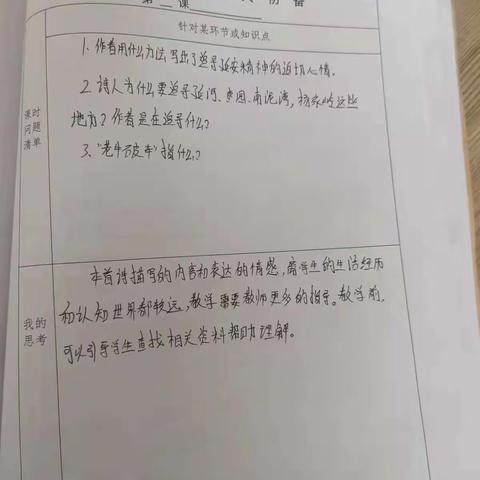 第二课
备
针对某环节或知识点
课时
问题
清单
1. 作者用什么方法写出了追寻延安精神的迫切心情。
2. 诗人为什么要追寻延河、枣园、南泥湾，杨家岭这些
地方？作者是在追寻什么？
3. "老牛破车"指什么？
我的
思考
本首诗描写的内容和表达的情感，离学生的生活经历
和认知世界都较远，教学需要教师更多的指导。教学前，
可以引导学生查找相关资料帮助理解。